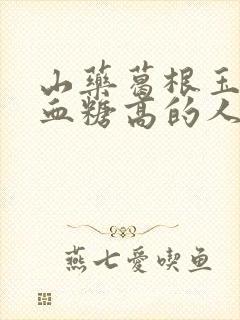 山藥葛根玉
血糖高的人
燕七愛喫鱼